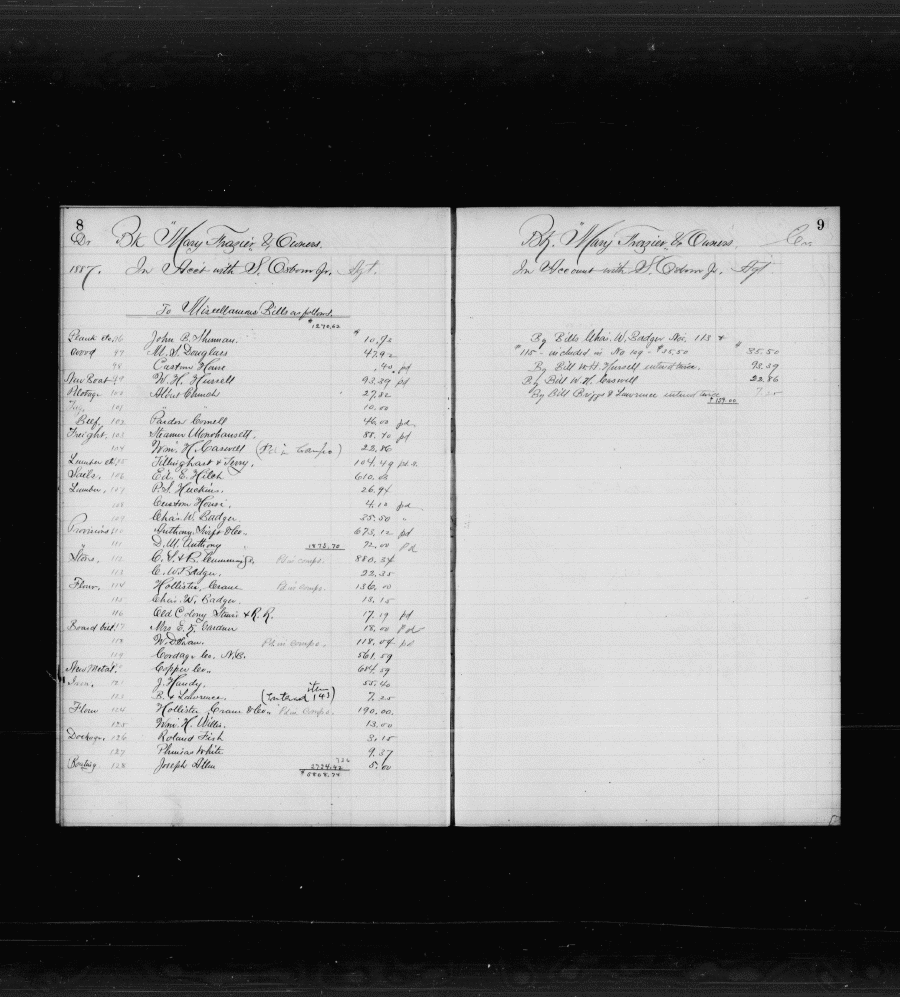 8
Dr Bk "Mary Frazier" & Owners.
1887. In Acct with S. Osborn Jr. Agt.
To Miscellaneous Bills as follows.
$1270,62
96 John B. $ 10,92
Wood 97 M. S. Douglass 47,92
98 Custom House ,40 pd
New Boat 99 W. H. 93,39 pd
Pilotage 100 Albert 27,32
101 " 10,00
Beef, 102 Pardon Cornell 46,00 pd
Freight, 103 Steamer Monohansett, 88,40 pd
104 Wm. H. Caswell (Pd in Compo) 22,86
Lumber etc 105 Tillinghast & Terry, 104,49 pd
Sails, 106 Ed. E. 610,02
Lumber, 107 26,94
108 Custom House, 4,10 pd
109 Chas. W. Badger. 35,50 "
Provisions 110 Anthony & Co 673,12 pd
" 111 D. W. Anthony 1873,70 72,00 Pd
Stores, 112 C. S. & B. Cummings, Pd in compo. 880,34
113 C. W. Badger, 22,35
Flour, 114 Hollister, Crane Pd in compo. 136,00
115 Chas. W. Badger, 13,15
116 Old Colony & R. R. 17,19 pd
Board bill 117 Mrs E. F. Gardner 18,00 Pd
118 W. Pd in compo. 118,04 pd
119 Cordage Co. N.B. 561,59
New Metal, Copper Co,. 684,59
121 J. Handy, 55,40
item
123 B. & Lawrence. (Entered 143) 7,25
Flour 124 Hollister, Crane & Co. Pd in compo. 190,00.
125 Wm. H. Willis, 13,00
Dockage, 126 Roland Fish 3,15
127 Phineas White 9,37
128 Joseph Allen 2724,42 5,00
$5808,74
9
Bk. "Mary Frazier" & Owners. Cr.
In Account with S. Osborn Jr. Agt
By Bills Chas. W. Badger Nos. 113 &
" 115 - included in No 109 - $35,50 $ 35,50
By Bill W. H. entered twice. 93,39
By Bill W. H. Caswell 22,86
By Bill Briggs & Lawrence entered twice 7,25
$159.00